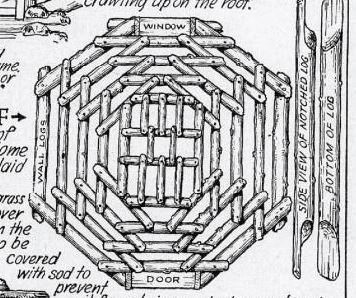 crawling up on the roof.
WINDOW
me,
or
F→
of
ome
laid
WALL LOGS
SIDE VIEW OF NOTCHED LOG
BOTTOM OF LOG
grass
over
n the
o be
covered
with sod to
prevent
DOOR